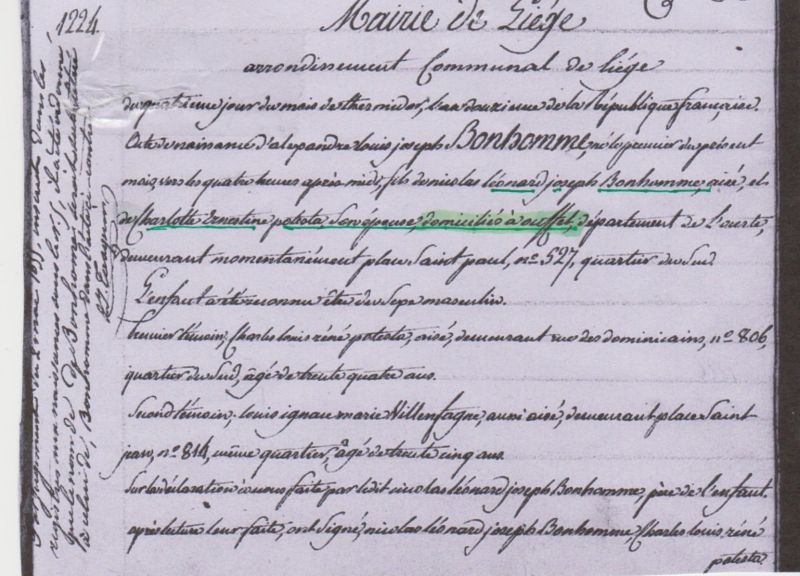 1224.
Mairie de Liége
arrondissement Communal de liége
du quatrieme jour du mois de thermidor, l'an douzieme de la République française.
Acte de naissance d'alexandre louis joseph Bonhomme, né le premier du présent
mois vers les quatre heures après midi, fils de nicolas léonard joseph Bonhomme, aisé, et
de Charlotte Ernestine potesta, son épouse, domiciliés à ouffet, département de l'ourte,
demeurant momentanément place Saint paul, n.º 527, quartier du Sud
L'enfant a été reconnu être du sexe masculin.
Premier témoin, Charles louis réné potesta, aisé, demeurant rue des dominicains, n.º 806,
quartier du Sud, âgé de trente quatre ans.
Second témoin, louis ignace marie Villenfagne, aussi aisé, demeurant place Saint
paul, n.º 814, même quartier, âgé de trente cinq ans.
Sur la déclaration à nous faite par ledit nicolas léonard joseph Bonhomme, père de l'enfant.
après lecture leur faite, ont signé, nicolas léonard joseph Bonhomme, Charles louis réné
potesta.
Par jugement du 2 mai 1855, inscrit dans les
registres aux naissances sous le n.º
que le nom de de Bonhomme sera substitué
à celui de Bonhomme dans l'acte ci-contre